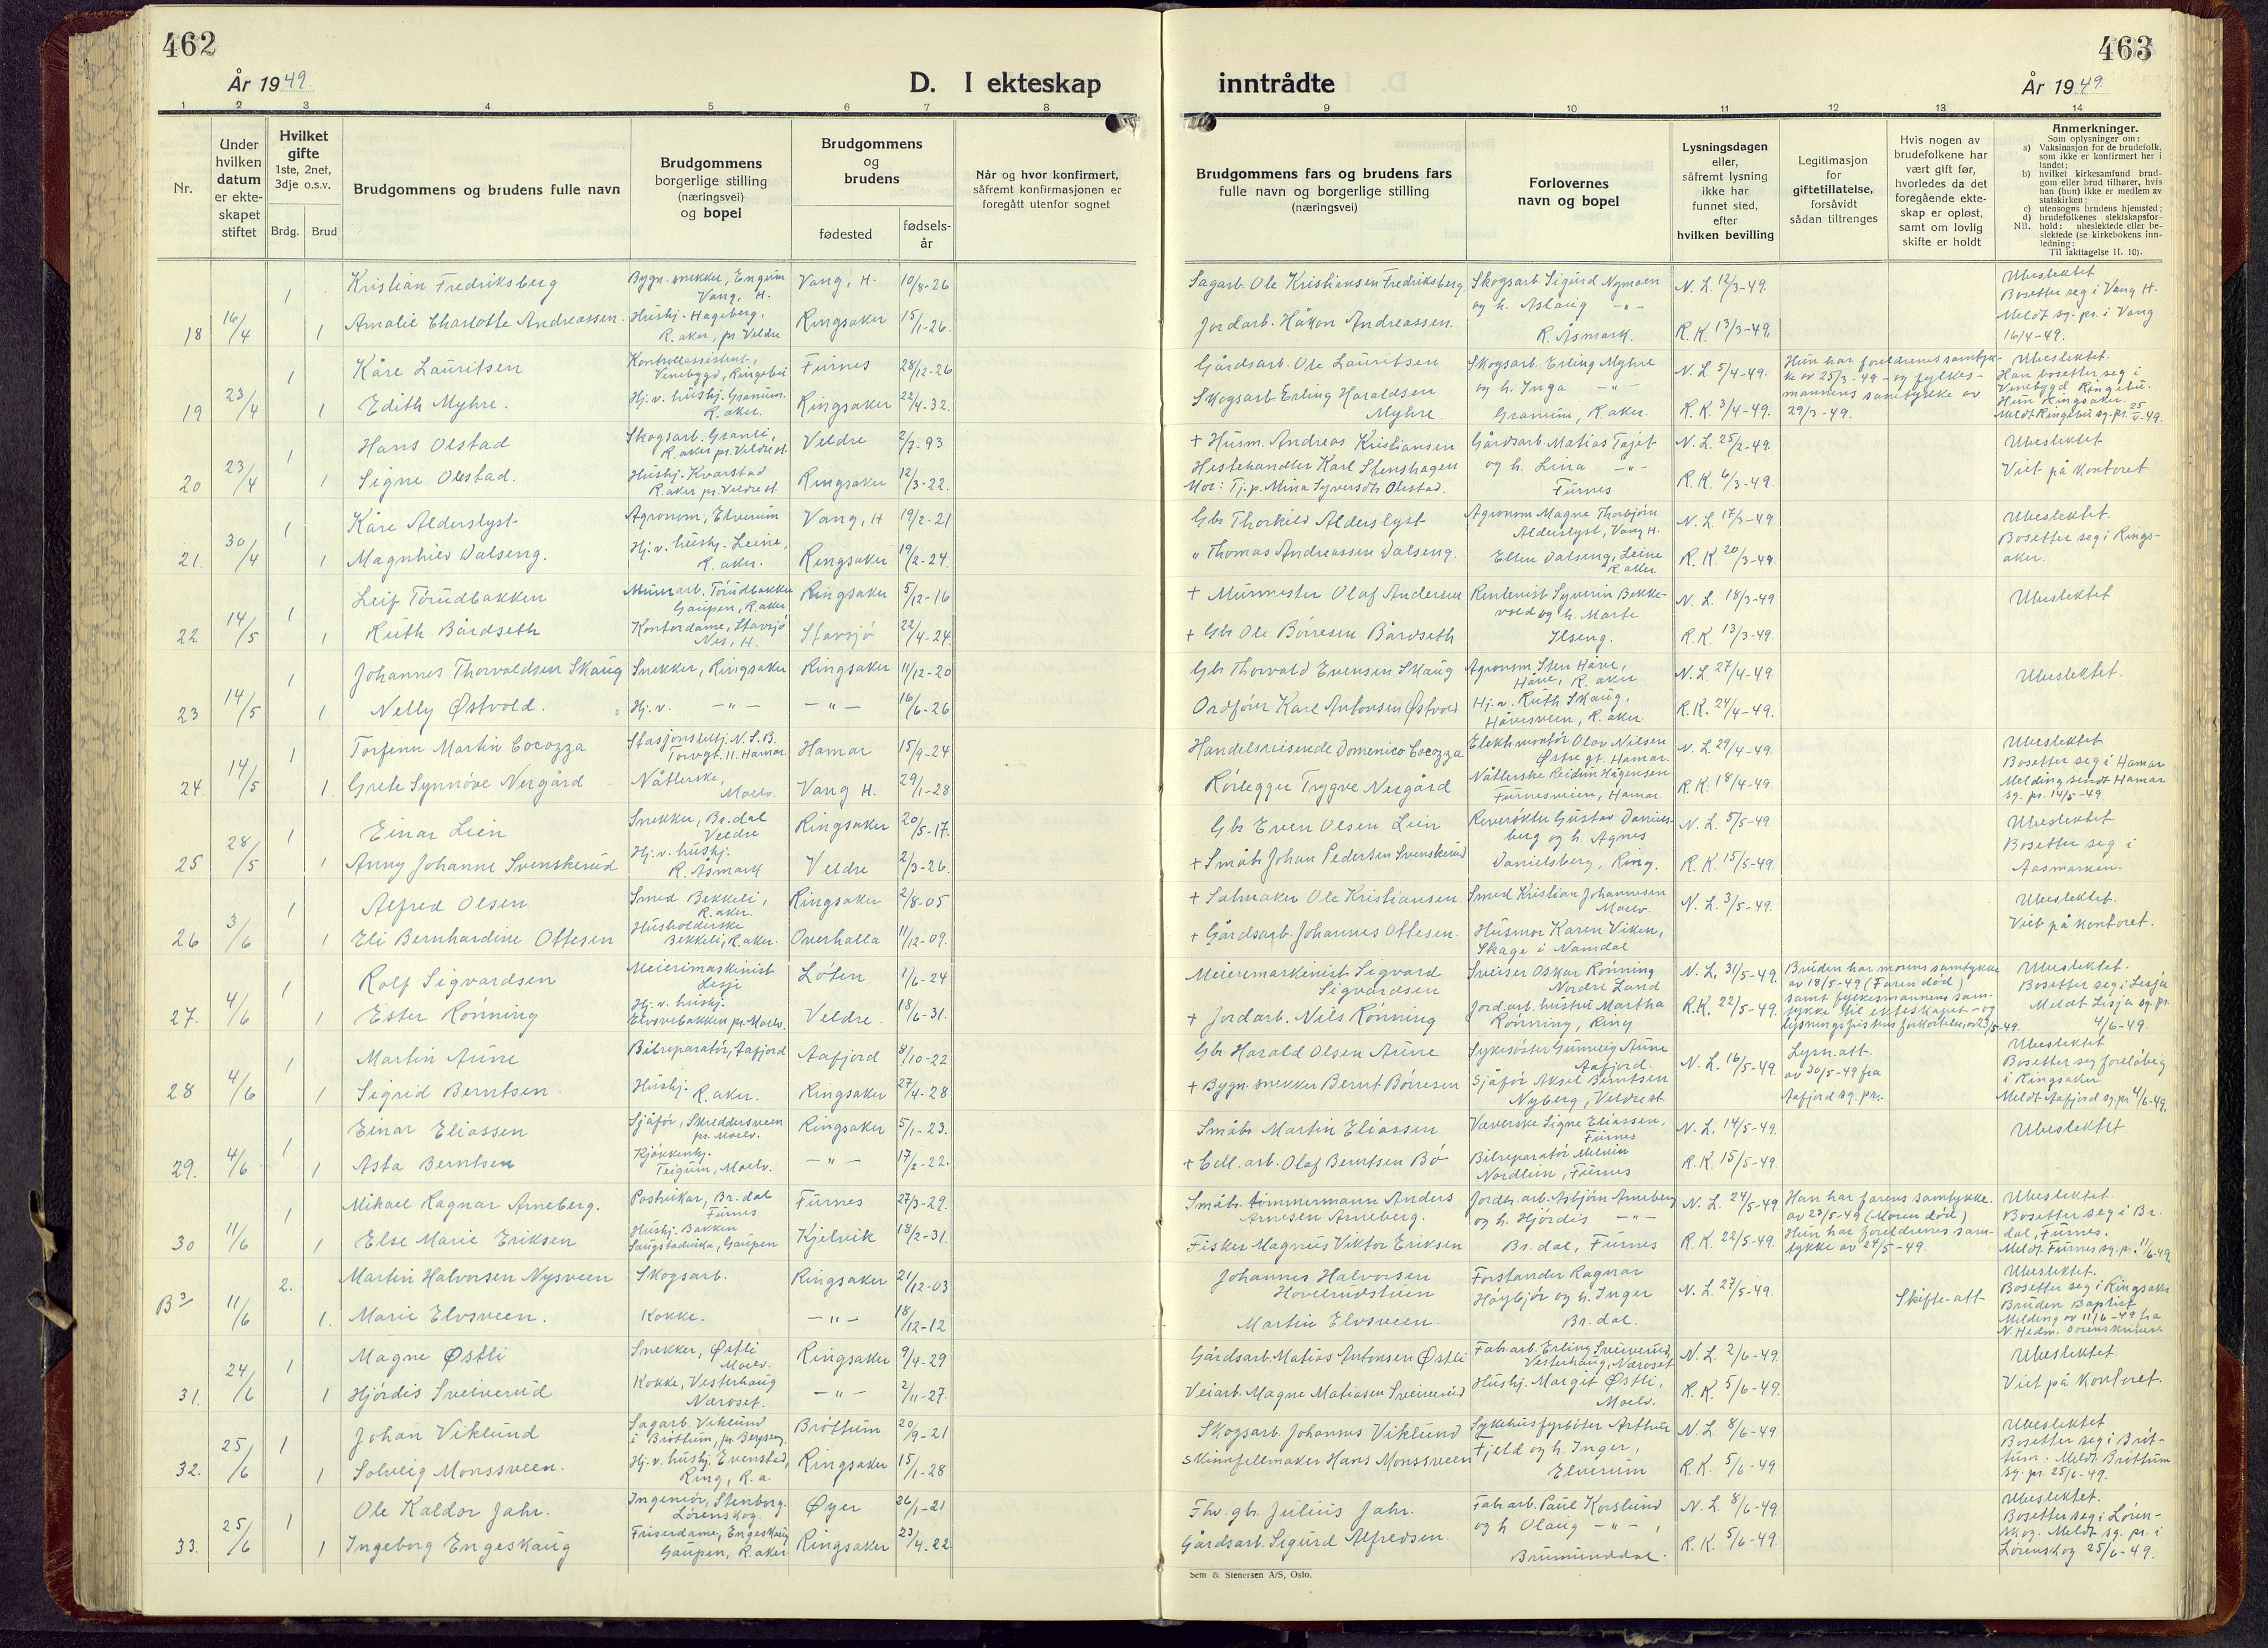 462
År 1949.
D. I ekteskap
1 2 3 4 5 6 7 8
Nr.
Under hvilken datum er ekte- skapet stiftet
Hvilket gifte 1ste, 2net, 3dje o.s.v.
Brdg. Brud
Brudgommens og brudens fulle navn
Brudgommens borgerlige stilling (næringsvei) og bopel
Brudgommens og brudens
fødested
fødsels- år
Når og hvor konfirmert, såfremt konfirmasjonen er foregått utenfor sognet
1 Kristian Fredriksberg Bygn. snekker, Engum Vang, H. Vang, H. 10/8-26
18 16/4 1 Amalie Charlotte Andreassen. Hushj. Hageberg, R. aker, pr Veldre Ringsaker 15/1-26.
1 Kåre Lauritsen Kontrollassistent, Venebygd, Ringebu Furnes 28/12-26
19 23/4 1 Edith Myhre. Hj. v. hushj. Granum. R. aker. Ringsaker 22/4-32.
1 Hans Olstad Skogsarb. Granli, R. aker pr. Veldre st. Veldre 2/7-93
20 23/4 1 Signe Olestad. Hushj. Kvarstad R. aker pr. Veldre st. Ringsaker 12/3-22.
1 Kåre Alderslyst Agronom, Elverum Vang, H 19/2-21
21. 30/4 1 Magnhild Dalseng. Hj. v. hushj. Leine, R. aker. Ringsaker 19/2-24.
1 Leif Torudbakken Murerarb. Torudbakken Gaupen, R. aker Ringsaker 5/12-16
22 14/5 1 Ruth Bårdseth Kontordame, Stavsjø Nes, H. Stavsjø 22/4-24.
1 Johannes Thorvaldsen Skaug Snekker, Ringsaker Ringsaker 11/12-20
23 14/5 1 Nelly Østvold. Hj. v. —"— —"— 16/6-26
1 Torfinn Martin Cocozza Stasjonsbetj. N.S.B. Torvgt. 11. Hamar. Hamar 15/9-24
24 14/5 1. Grete Synnøve Nergård Nåtlerske, Moelv. Vang H. 29/1-28
1 Einar Lien Snekker, Br.dal Veldre Ringsaker 20/5-17.
25 28/5 1 Anny Johanne Svenskerud Hj. v. hushj. R. Åsmark Veldre 2/3-26.
1 Alfred Olsen Smed Bekkeli, R. aker. Ringsaker 2/8-05
26 3/6 1 Eli Bernhardine Ottesen Husholderske Bekkeli, R. aker. Overhalla 11/12-09.
1 Rolf Sigvardsen Meierimaskinist Lesje Løten 1/6-24
27. 4/6 1 Ester Rønning Hj. v. hushj. Elvsvebakken pr. Moelv. Veldre. 18/6-31.
1 Martin Aune Bilreparatør, Aafjord Aafjord 8/10-22
28 4/6 1 Sigrid Berntsen. Hushj. R. aker. Ringsaker 27/4-28
1 Einar Eliassen Sjåfør, Skreddersveen pr. Moelv. Ringsaker 5/1-23.
29. 4/6 1 Asta Berntsen Kjøkkenhj. Teigum, Moelv. —"— 17/2-22.
1 Mikael Ragnar Arneberg. Postvikar, Br.dal Furnes Furnes 27/3-29.
30 11/6 1 Else Marie Eriksen Hushj. Bakken Saugstadvika, Gaupen Kjelvik 18/2-31.
2. Martin Halvorsen Nysveen Skogsarb. Ringsaker 21/12-03
B 3/ 11/6 1. Marie Elvsveen. Kokke. —"— 18/12-12
1 Magne Østli Snekker, Østli Moelv. Ringsaker 9/4-29
31. 24/6 1 Hjørdis Sveinerud Kokke, Vesterhaug Næroset. —"— 2/11-27.
1 Johan Viklund Sagarb. Viklund i Brøttum, pr. Bergseng. Brøttum 20/9-21
32. 25/6 1 Solveig Monssveen. Hj. v. hushj. Evenstad, Ring, R. a. Ringsaker 15/1-28
1 Ole Kaldor Jahr. Ingeniør, Stenborg. Lørenskog. Øyer 26/1-21
33. 25/6 1 Ingeborg Engeskaug Friserdame, Engeskaug Gaupen, R. aker Ringsaker 23/4-22
463
inntrådte
År 1949.
9 10 11 12 13 14
Brudgommens fars og brudens fars fulle navn og borgerlige stilling (næringsvei)
Forlovernes navn og bopel
Lysningsdagen eller, såfremt lysning ikke har funnet sted, efter hvilken bevilling
Legitimasjon for giftetillatelse, forsåvidt sådan tiltrenges
Hvis nogen av brudefolkene har vært gift før, hvorledes da det foregående ekte- skap er opløst, samt om lovlig skifte er holdt
Anmerkninger.
Som oplysninger om:
a) Vaksinasjon for de brudefolk, som ikke er konfirmert her i landet;
b) hvilket kirkesamfund brud- gom eller brud tilhører, hvis han (hun) ikke er medlem av statskirken;
c) utensogns brudens hjemsted;
d) brudefolkenes slektskapsfor-
NB. hold: ubeslektede eller be- slektede (se kirkebokens inn- ledning: Til iakttagelse II. 10).
Sagarb. Ole Kristiansen Fredriksberg Skogsarb. Sigurd Nymoen og h. Aslaug —"— N. L. 12/3-49. Ubeslektet Bosetter seg i Vang H.
Jordarb. Håkon Andreassen. R. Åsmark. R.K. 13/3-49. Meldt sg. pr. i Vang 16/4-49.
Gårdsarb. Ole Lauritsen Skogsarb. Erling Myhre og h. Inga —"— N. L. 5/4-49. Hun har foreldrenes samtyk- ke av 25/3-49 - og fylkes- mannens samtykke av 29/3-49. Ubeslektet. Han bosetter seg i Venebygd Ringebu.
Skogsarb Erling Haraldsen Myhre. Granum, R. aker. R.K. 3/4-49. Hun Ringsaker. Meldt Ringebu sg. pr. 25/4-49.
+ Husm. Andreas Kristiansen Gårdsarb. Matias Tajet og h. Lina —"— N. L. 25/2-49. Ubeslektet
Hestehandler Karl Stenshagen Mor: Tj. p. Mina Syversdtr Olestad. Furnes R.K. 6/3-49. Viet på kontoret
Gbr Thorkild Alderslyst Agronom Magne Thorbjørn Alderslyst, Vang H. N. L. 17/3-49 Ubeslektet.
" Thomas Andreassen Dalseng. Ellen Dalseng, Leine R. aker R.K. 20/3-49 Bosetter seg i Rings- aker.
+ Murmester Olaf Andersen Rentenist Syverin Bekke- vold og h. Marte N. L. 18/3-49 Ubeslektet
+ Gbr Ole Børresen Bårdseth Ilseng. R.K. 13/3-49.
Gbr Thorvald Evensen Skaug Agronom Sten Håve, Håve, R. aker N. L. 27/4-49. Ubeslektet.
Ordfører Karl Antonsen Østvold Hj. v. Ruth Skaug, Håvesveen, R. aker. R.K. 24/4-49.
Handelsreisende Domenico Cocozza Elektr. montør Olav Nilsen Østre gt. Hamar. N. L. 29/4-49. Ubeslektet Bosetter seg i Hamar
Rørlegger Trygve Nergård Nåtlerske Reidun Hågensen Furnesveien, Hamar. R.K. 18/4-49. Melding sendt Hamar sg. pr. 14/5-49.
Gbr Even Olsen Lien Reverøkter Gustav Daniels- berg og h. Agnes N. L. 5/5-49 Ubeslektet
+ Småbr Johan Pedersen Svenskerud Danielsberg, Ring. R.K. 15/5-49. Bosetter seg i Aasmarken.
+ Salmaker Ole Kristiansen. Smed Kristian Johannesen Moelv. N. L. 3/5-49. Ubeslektet.
+ Gårdsarb. Johannes Ottesen. Husmor Karen Viken, Skage i Namdal Viet på kontoret.
Meierimaskinist Sigvard Sigvardsen Sveiser Oskar Rønning Nordre Land N. L. 31/5-49. Bruden har morens samtykke av 18/5-49 (Faren død) Ubeslektet. Bosetter seg i Lesja
+ Jordarb. Nils Rønning Jord.arb. hustru Martha Rønning, Ring R.K. 22/5-49. samt fylkesmannens sam- tykke til ekteskapet - og lysningsfristens forkortelse, av 23/5-49. Meldt Lesja sg. pr. 4/6-49.
Gbr Harald Olsen Aune Sykesøster Gunveig Aune Aafjord. N. L. 16/5-49. Lysn. att. av 30/5-49 fra Aafjord sg. pr. Ubeslektet Bosetter seg foreløbig i Ringsaker.
+ Bygn. snekker Bernt Børresen Sjåfør Aksel Berntsen Nyberg, Veldre st. Meldt Aafjord sg. pr. 4/6-49.
Småbr Martin Eliassen Væverske Signe Eliassen, Furnes N. L. 14/5-49. Ubeslektet
+ Cell. arb. Olaf Berntsen Bø Bilreparatør Melvin Nordlien, Furnes R.K. 15/5-49.
Småbr. tømmermann Anders Arnesen Arneberg. Jordbr. arb. Asbjørn Arneberg og h. Hjørdis —"— N. L. 24/5-49 Han har farens samtykke. av 23/5-49 (Moren død) Ubeslektet. Bosetter seg i Br. dal, Furnes.
Fisker Magnus Viktor Eriksen Br. dal, Furnes R.K. 22/5-49. Hun har foreldrenes sam- tykke av 24/5-49. Meldt Furnes sg. pr. 11/6-49.
Johannes Halvorsen Hovelrudstuen Forstander Ragnar Høybjør og h. Inger N. L. 27/5-49. Skifte-att. Ubeslektet. Bosetter seg i Ringsaker
Martin Elvsveen. Br. dal. Bruden Baptist Melding av 11/6-49 fra N. Hedm. sorenskriver.
Gårdsarb. Matias Antonsen Østli Fab.arb. Erling Sveinerud, Vesterhaug, Næroset N. L. 2/6-49. Ubeslektet
Veiarb. Magne Matiasen Sveinerud Hushj. Margit Østli, Moelv. R.K. 5/6-49. Viet på kontoret.
Skogsarb. Johannes Viklund Sykehusfyrbøter Arthur Fjeld og h. Inger, N. L. 8/6-49 Ubeslektet Bosetter seg i Brøt-
Skinnfellmaker Hans Monssveen Elverum R.K. 5/6-49 tum. Meldt Brøttum sg. pr. 25/6-49.
Fhv. gbr. Julius Jahr. Fab.arb. Paul Korslund og h. Olaug —"—, N. L. 8/6-49 Ubeslektet. Bosetter seg i Løren-
Gårdsarb. Sigurd Alfredsen. Brumunddal. R.K. 5/6-49. skog. Meldt sg. pr. i Lørenskog 25/6-49.
Sem & Stenersen A/S, Oslo.